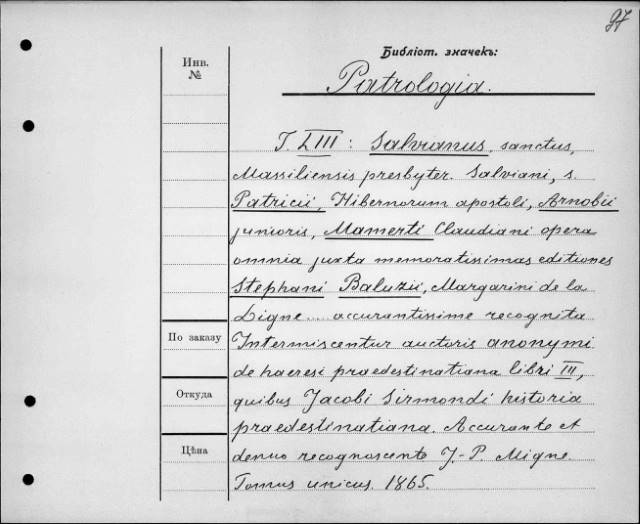 97
Библіот. значекъ:
Инв.
№
Patrologia.
T. LIII: Salvianus, sanctus,
Massiliensis presbyter. Salviani, s.
Patricii, Hibernorum apostoli, Arnobii
junioris, Mamerti Claudiani opera
omnia juxta memoratissimas editiones
Stephani Baluzii, Margarini de la
Digne .... accurantissime recognita
По заказу
Intermiscentur auctoris anonymi
de haeresi praedestinatiana libri III,
Откуда
quibus Jacobi Sirmondi historia
praedestinatiana. Accurante et
Цѣна
denuo recognoscente J.-P. Migne.
Tomus unicus. 1865.